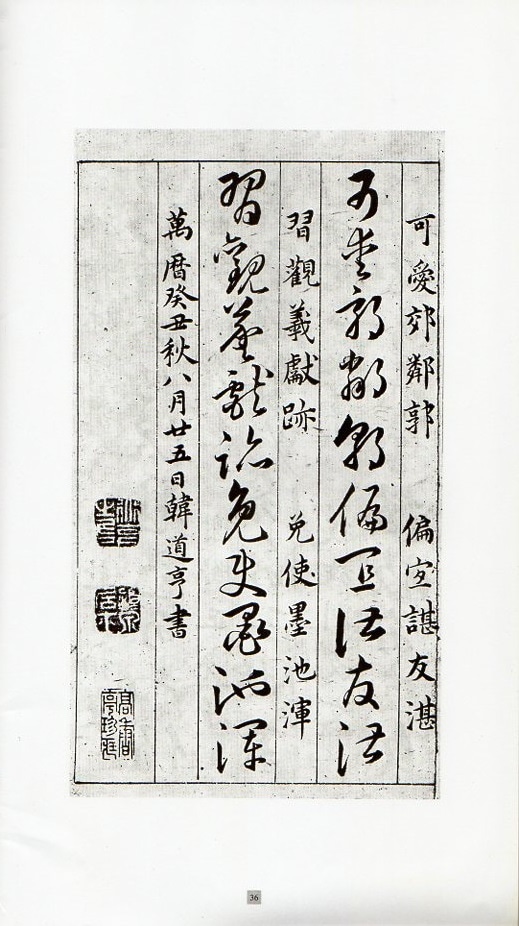 可愛郊鄰郭 偏宜諶友湛
可愛郊鄰郭偏宜諶友湛
習觀羲獻跡 免使墨池渾
習觀羲獻跡免使墨池渾
萬曆癸丑秋八月廿五日韓道亨書
36